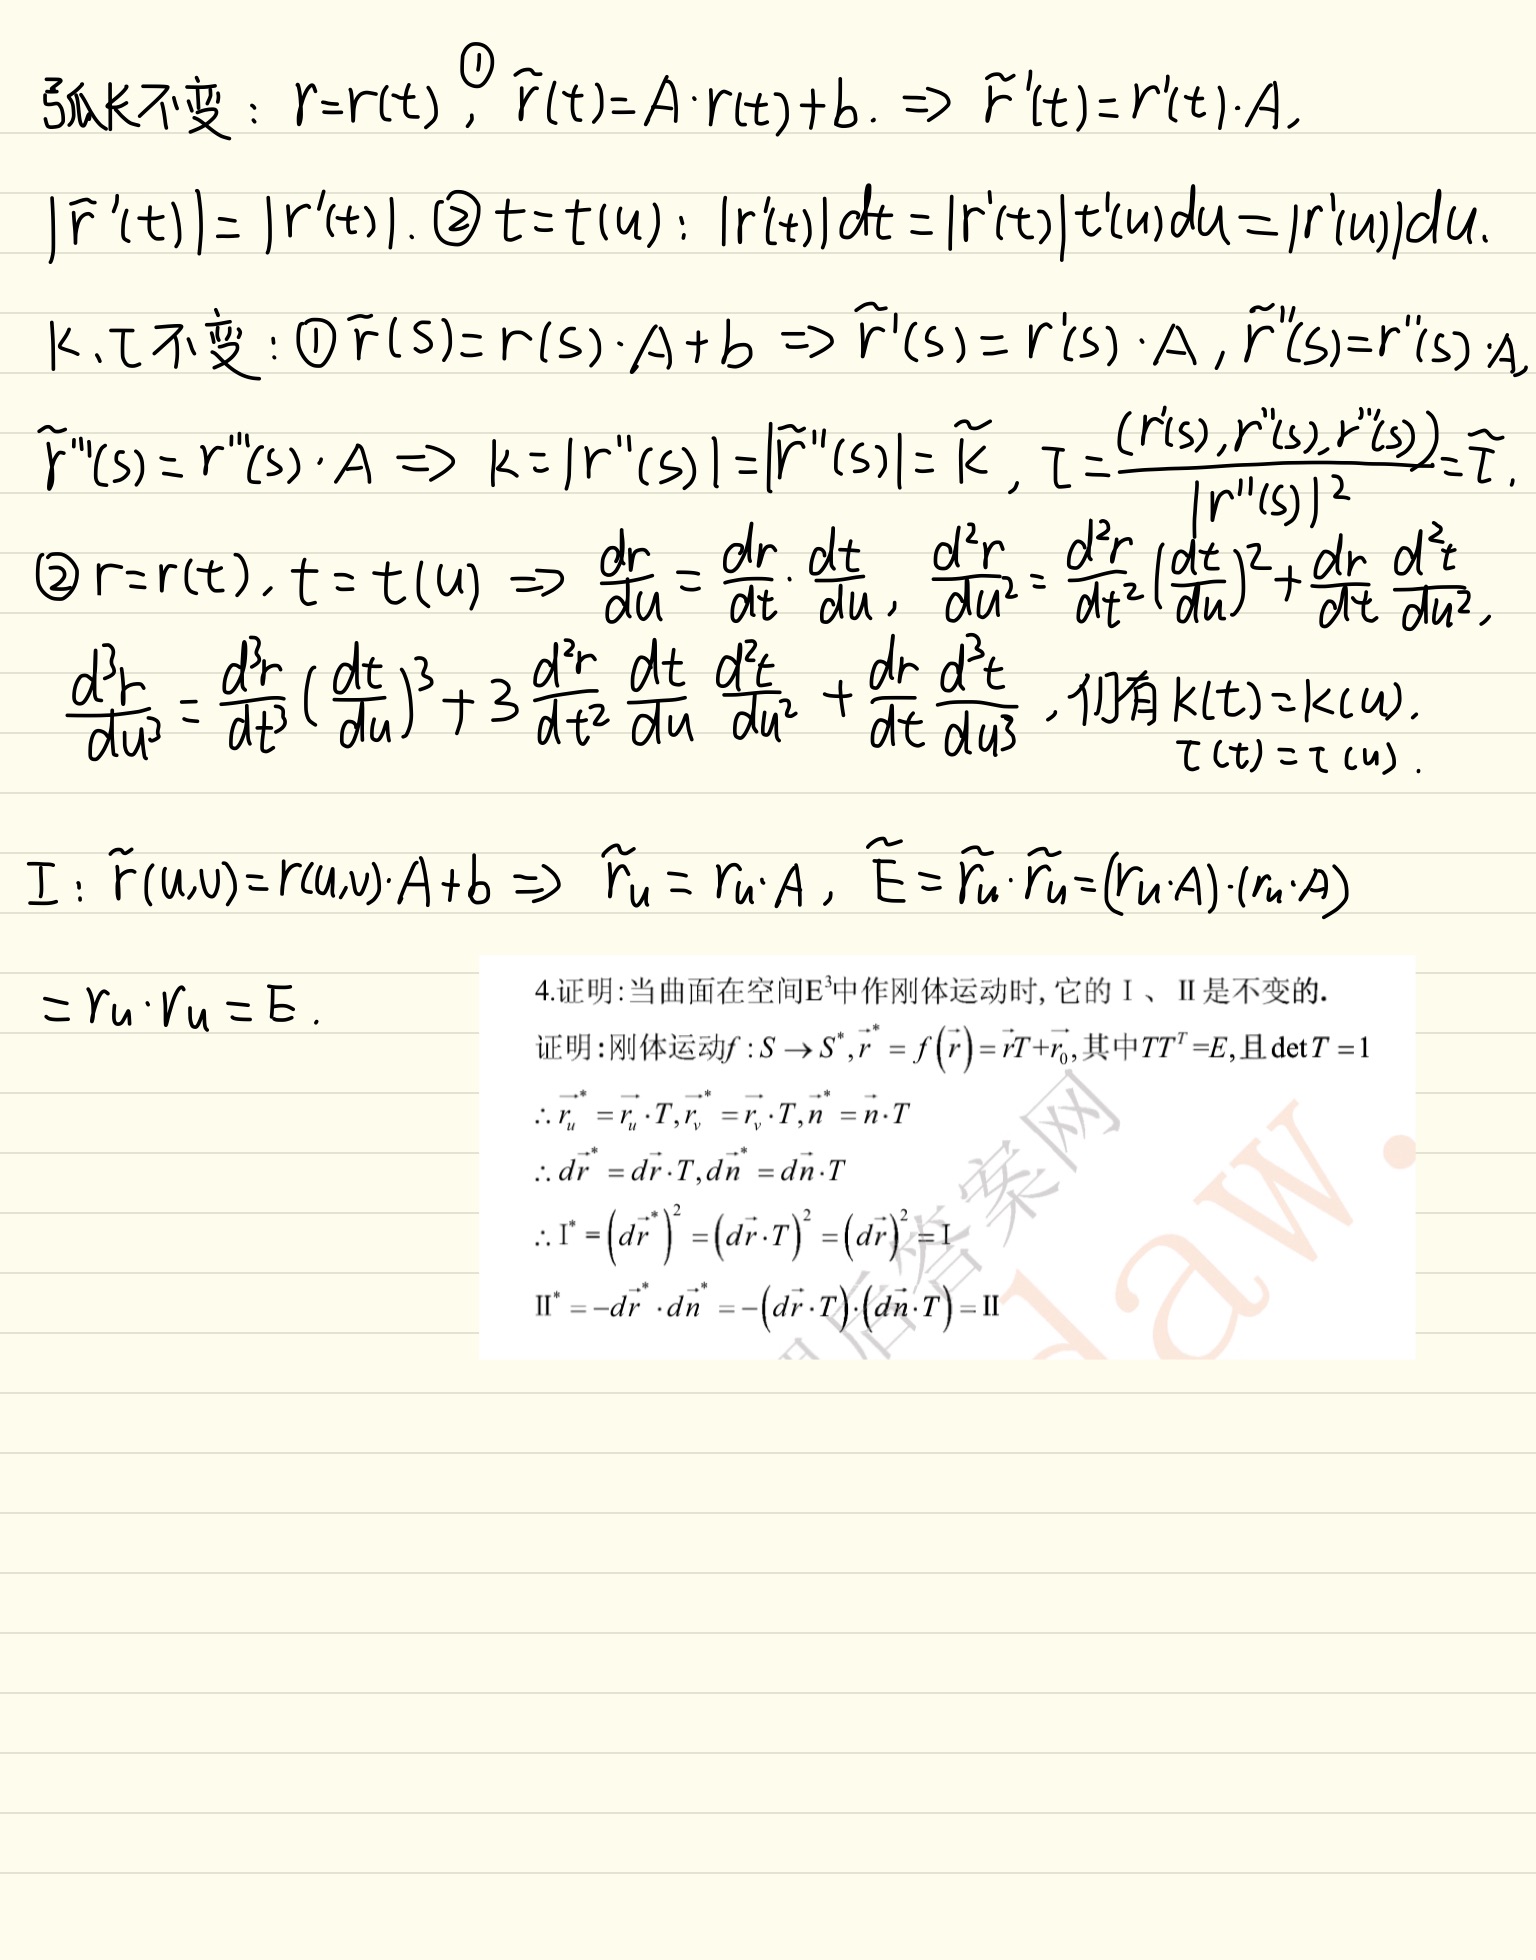 弧长不变：r=r(t)，① r̃(t)=A·r(t)+b. ⇒ r̃'(t)=r'(t)·A,
|r̃'(t)|=|r'(t)|. ② t=t(u)：|r'(t)|dt=|r'(t)|t'(u)du=|r'(u)|du.
k、τ不变：① r̃(s)=r(s)·A+b ⇒ r̃'(s)=r'(s)·A, r̃''(s)=r''(s)·A,
r̃'''(s)=r'''(s)·A ⇒ k=|r''(s)|=|r̃''(s)|=k̃, τ=(r'(s),r''(s),r'''(s))/|r''(s)|²=τ̃.
② r=r(t), t=t(u) ⇒ dr/du=dr/dt·dt/du, d²r/du²=d²r/dt²(dt/du)²+dr/dt d²t/du²,
d³r/du³=d³r/dt³(dt/du)³+3 d²r/dt² dt/du d²t/du²+dr/dt d³t/du³，仍有k(t)=k(u).
τ(t)=τ(u).
I：r̃(u,v)=r(u,v)·A+b ⇒ r̃u=ru·A, Ẽ=r̃u·r̃u=(ru·A)·(ru·A)
=ru·ru=E.
4.证明:当曲面在空间E³中作刚体运动时, 它的Ⅰ、Ⅱ是不变的.
证明:刚体运动f:S→S*, r⃗*=f(r⃗)=r⃗T+r⃗₀,其中TTᵀ=E,且det T=1
∴r⃗u*=r⃗u·T, r⃗v*=r⃗v·T, n⃗*=n⃗·T
∴dr⃗*=dr⃗·T, dn⃗*=dn⃗·T
∴Ⅰ*=(dr⃗*)²=(dr⃗·T)²=(dr⃗)²=Ⅰ
Ⅱ*=-dr⃗*·dn⃗*=-(dr⃗·T)·(dn⃗·T)=Ⅱ
后答案网
daw.